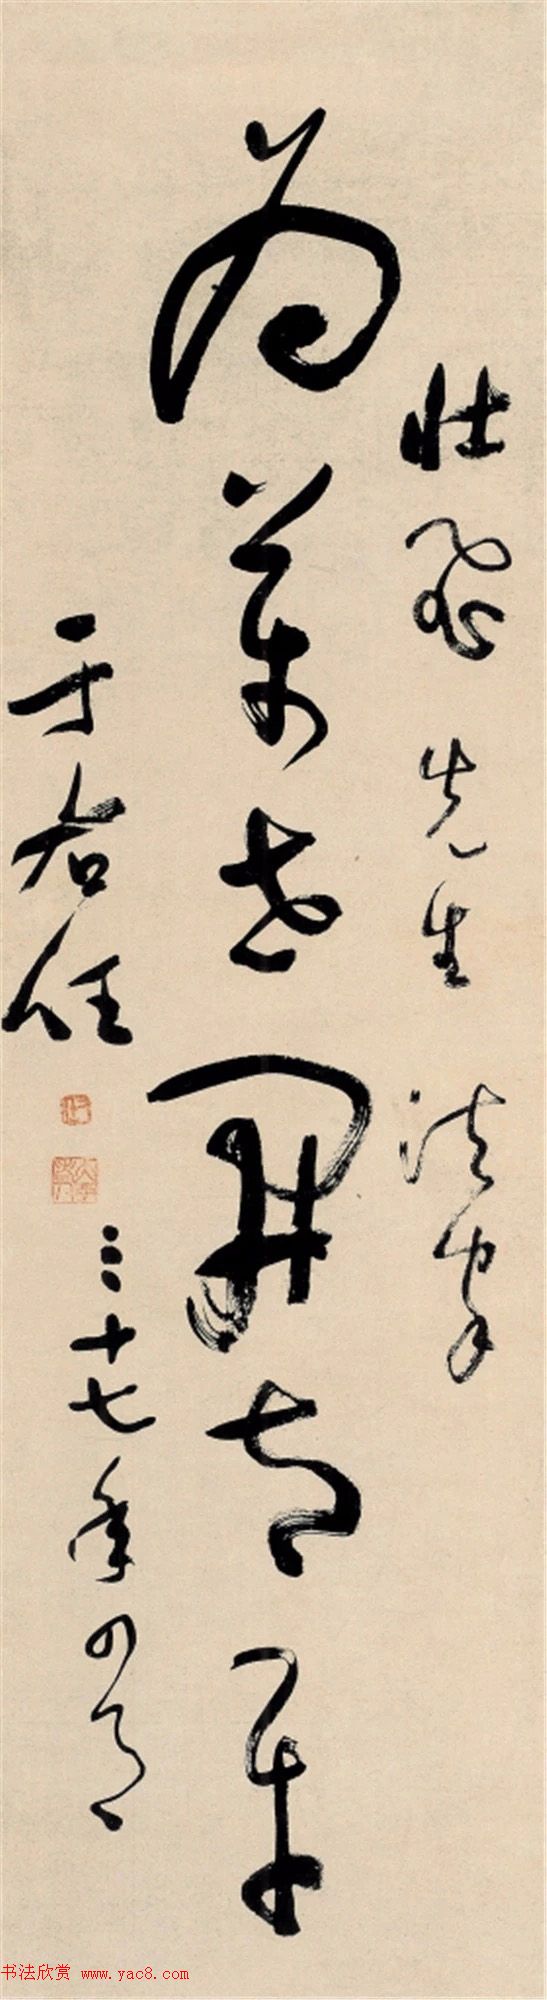 壮飛先生法家
为萬世開太平
于右任
三十七年四月
书法欣赏 www.yac8.com